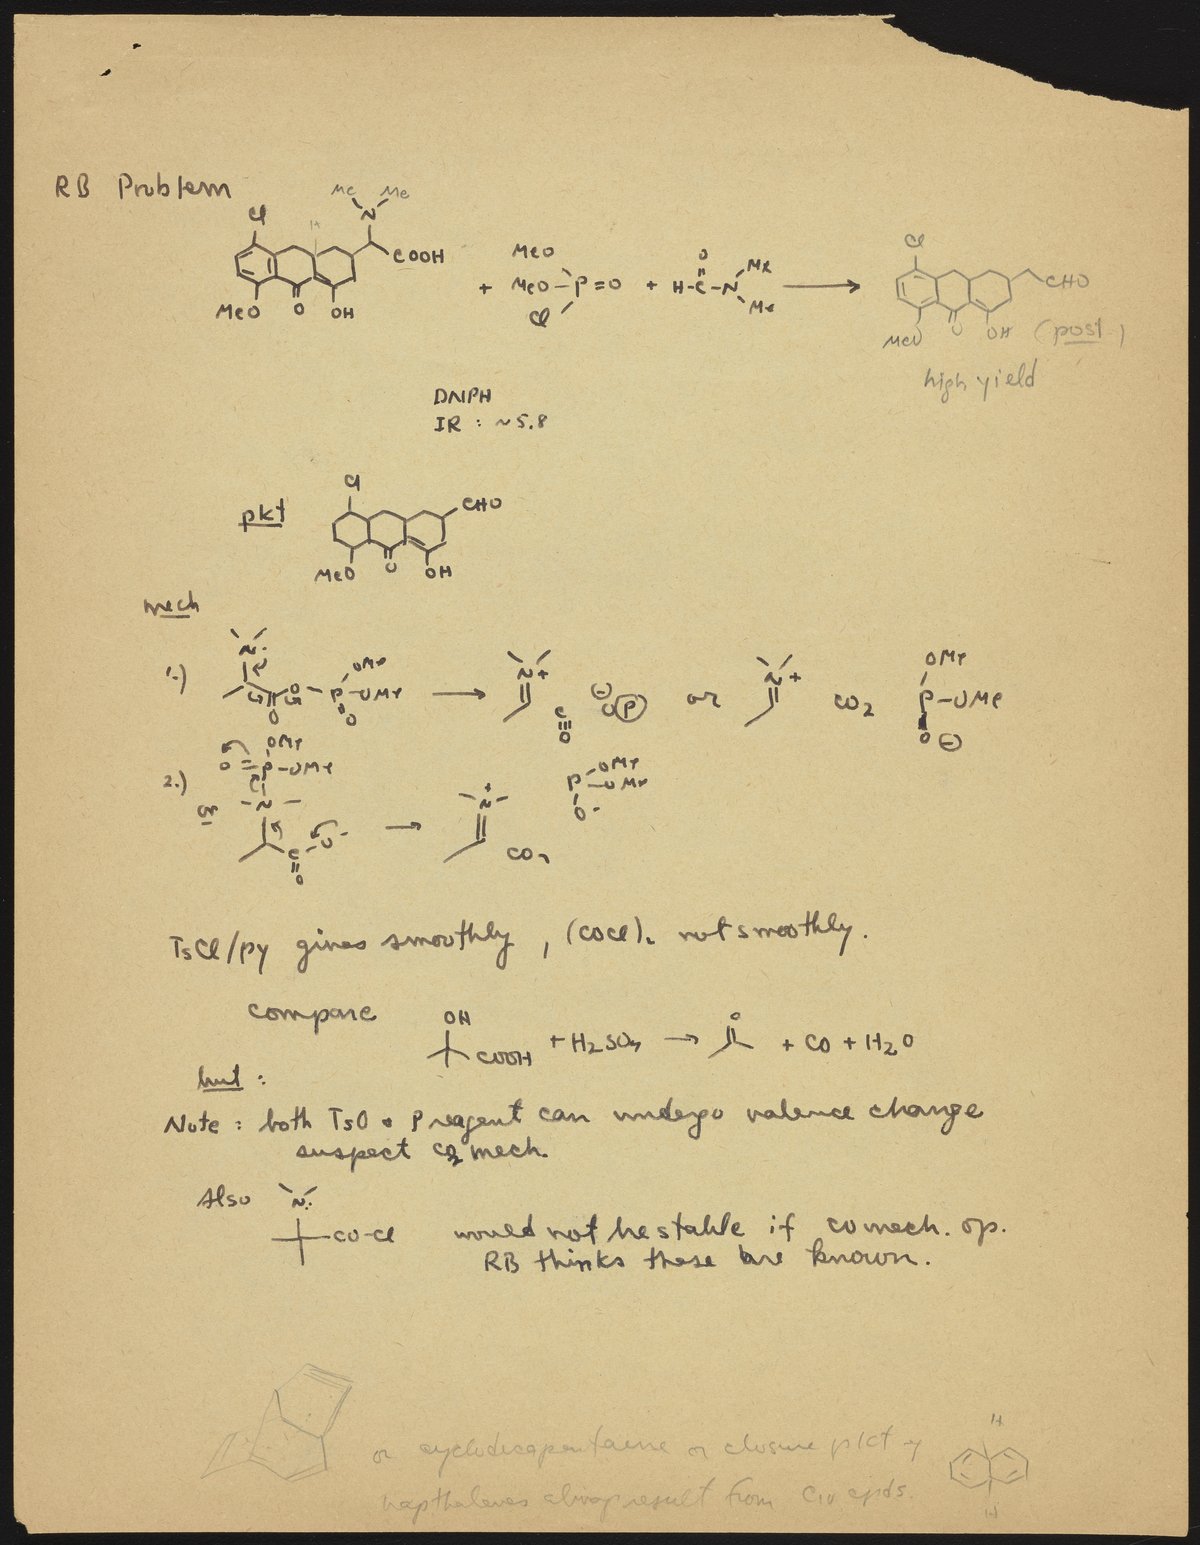 RB Problem
Me Me
N
Cl
H
COOH
MeO O OH
+
MeO
MeO-P=O
Cl
+
O
H-C-N
Me
Me
Cl
CHO
MeO O OH (post)
high yield
DNPH
IR : ~5.8
pkt
Cl
CHO
MeO O OH
mech
1.)
N:
O
O
P
OMe
OMe
O
N+
C
O
⊖
O P
or
N+
CO2
OMe
P-OMe
O ⊖
2.)
or
OMe
O=P-OMe
N
C-O-
O
+
N
CO2
P
OMe
OMe
O-
TsCl/py gives smoothly, (COCl)2 not smoothly.
compare
OH
COOH
+ H2SO4 → O + CO + H2O
but :
Note : both TsO & P reagent can undergo valence change
suspect CO2 mech.
Also
N:
CO-Cl
would not be stable if CO mech. op.
RB thinks these are known.
or cyclodecapentaene or closure pkt
H
H
napthalenes always result from C10 cpds.